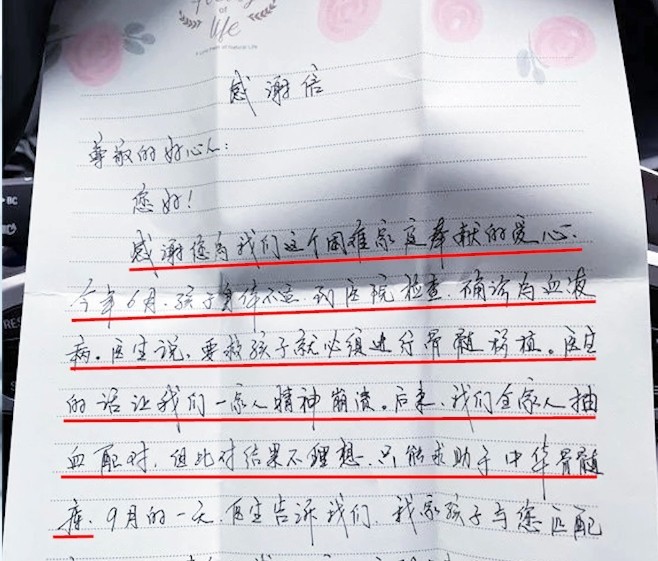 of
life
感谢信
尊敬的好心人：
您好！
感谢您为我们这个困难家庭奉献的爱心.
今年6月.孩子身体不适.到医院检查.确诊为血液
病。医生说，要救孩子就必须进行骨髓移植。医生
的话让我们一家人精神崩溃。后来，我们全家人抽
血配对，但比对结果不理想.只能求助于中华骨髓
库.9月的一天.医生告诉我们.我家孩子与您匹配
BC
RES